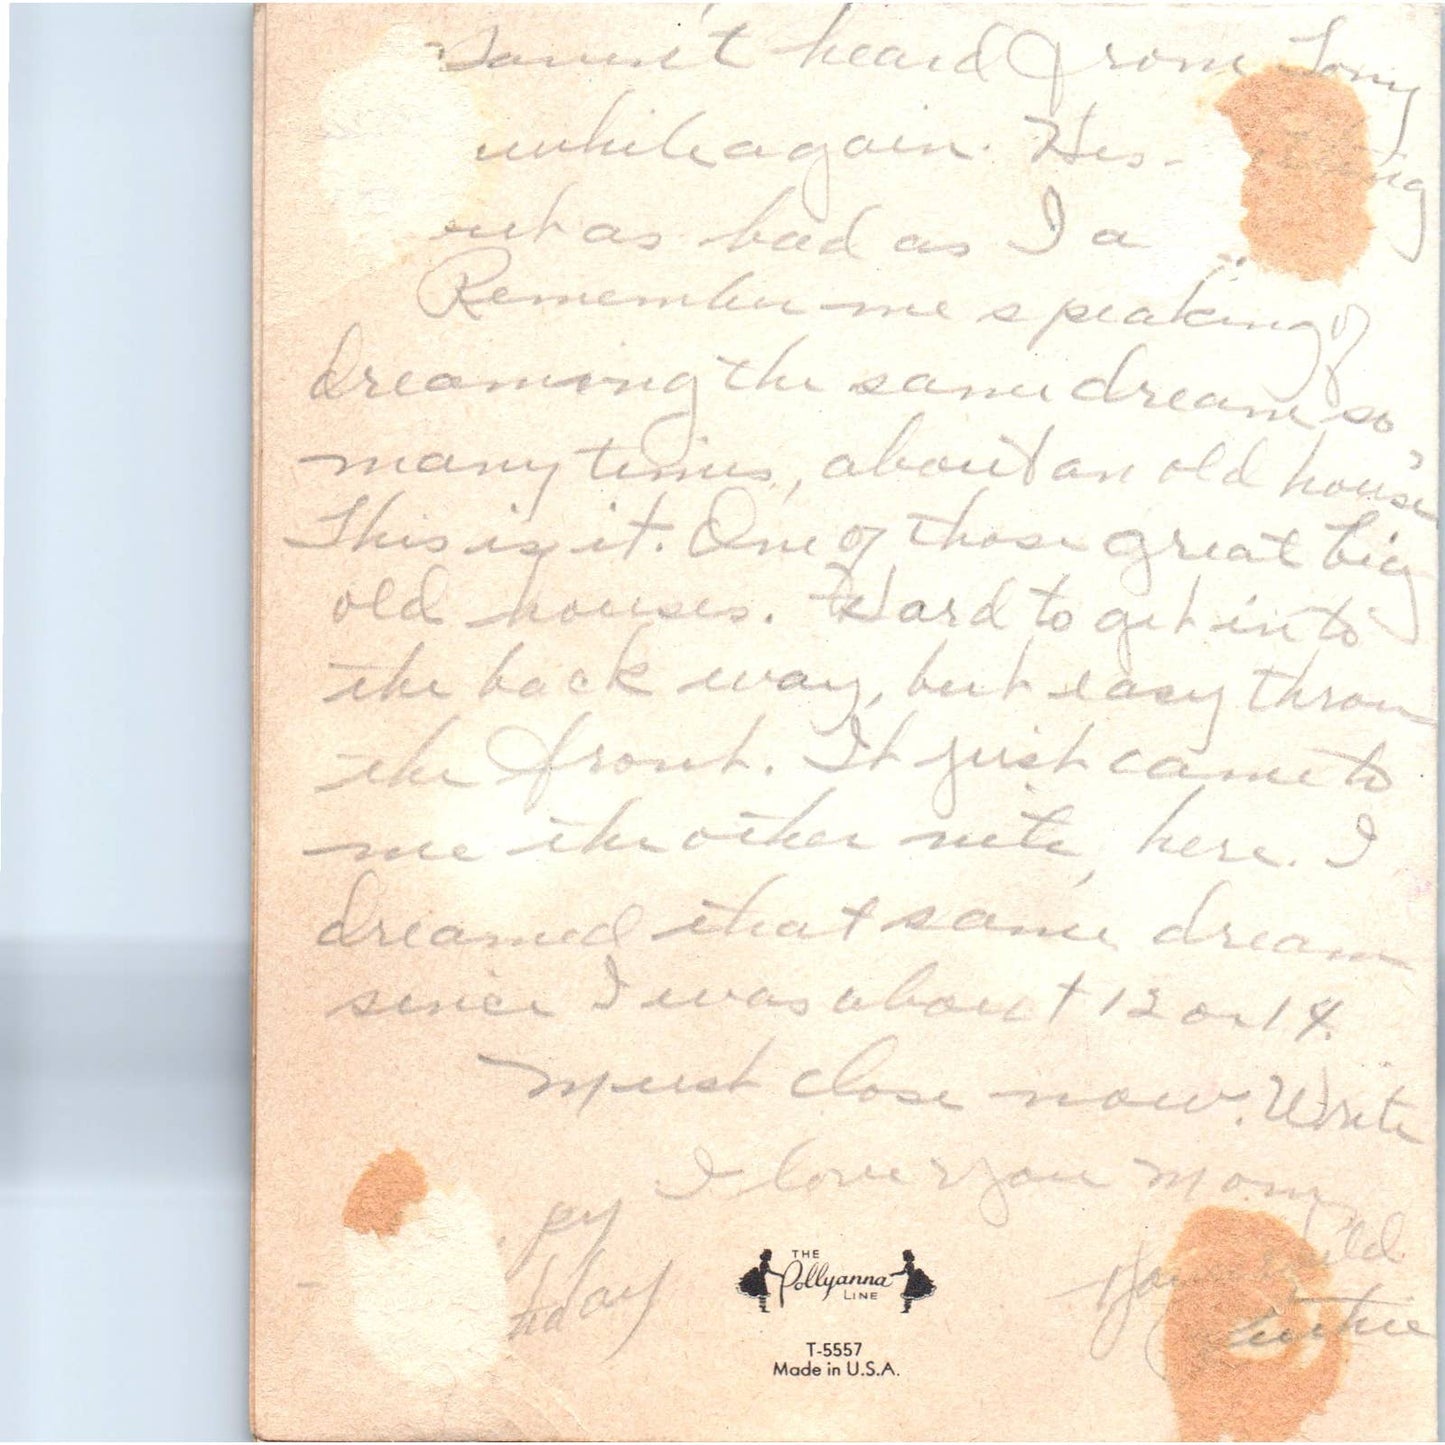 haven't heard from Tony
while again. He's
but as bad as I a
Remember me speaking of
dreaming the same dream so
many times, about an old house,
This is it. One of those great big
old houses. Hard to get into
the back way, but easy throu
the front. It just came to
me the other nite, here. I
dreamed that same dream
since I was about 13 or 14.
Must close now. Write
I love you Mom
py
day
THE
Pollyanna
LINE
T-5557
Made in U.S.A.